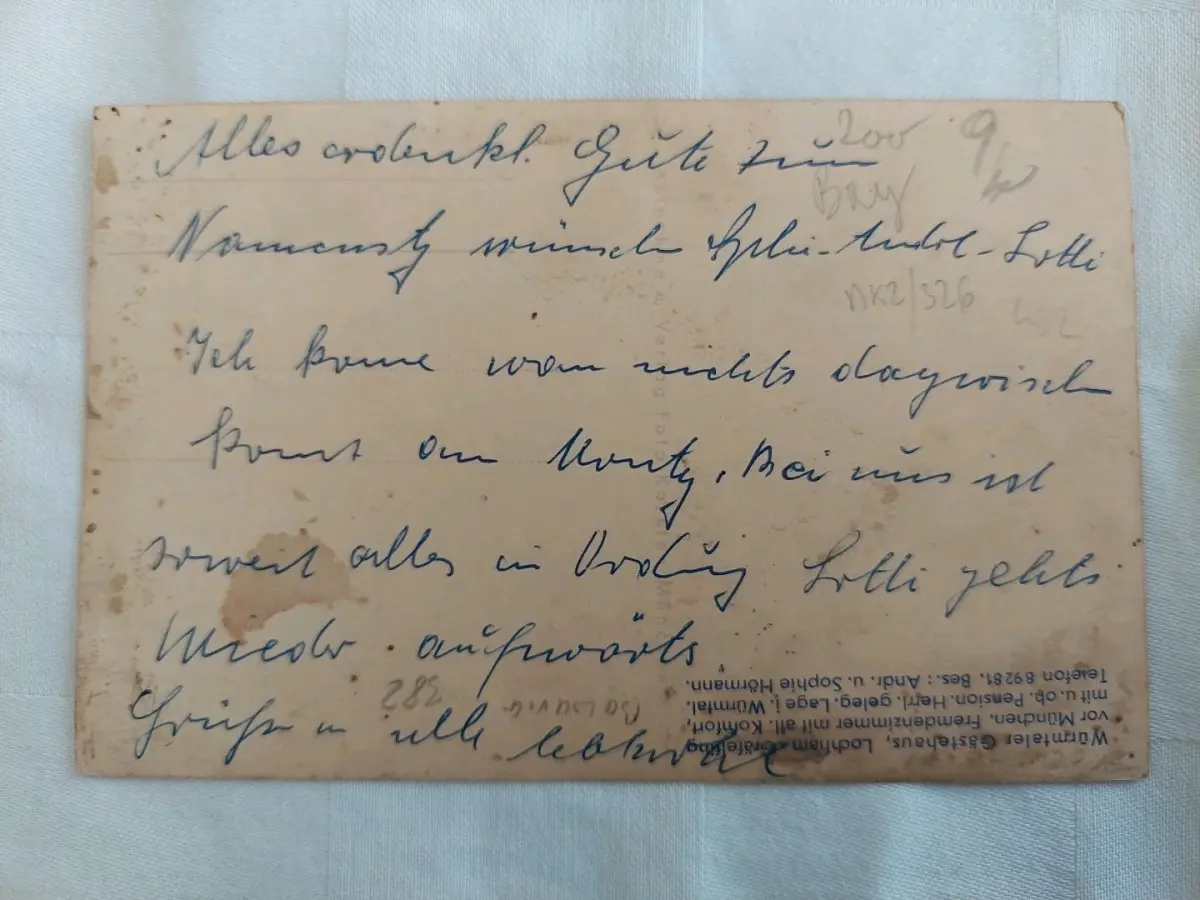 Alles erdenkl. Gute zum
Namenstg wünschn - Lotti
Ich kome wen nichts dazwischn
komt am Montg. Bei uns ist
soweit alles in Ordnūg Lotti gehts
Wieder aufwärts
Grüße u alle lebtwohl
200 9/
Bay
NK2/326
282
Würmtaler Gästehaus, Lochham Gräfelfing
vor München. Fremdenzimmer mit all. Komfort,
mit u. ob. Pension. Herrl. geleg. Lage i. Würmtal.
Telefon 89281. Bes.: Andr. u. Sophie Hörmann.